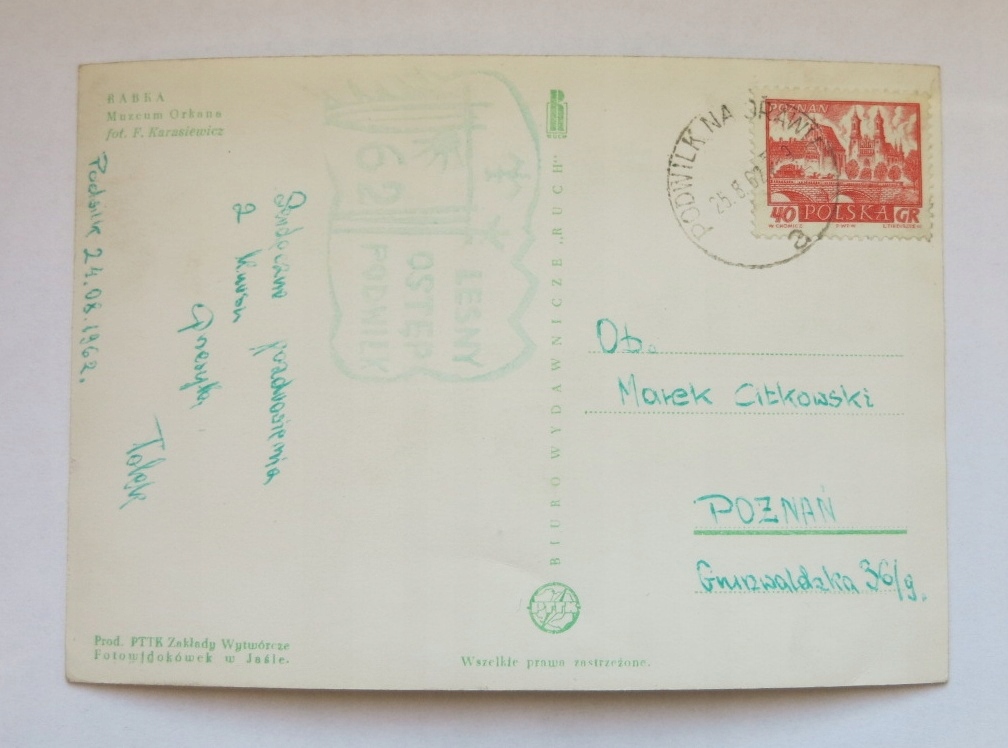 RABKA
Muzeum Orkana
fot. F. Karasiewicz
Podwilk 24.08.1962.
pozdrowienia
z
62
LEŚNY
OSTĘP
PODWILK
BIURO WYDAWNICZE „RUCH"
PODWILK NA ORAWIE
25.8.62
a
POZNAŃ
40 POLSKA GR
Ob.
Marek Citkowski
POZNAŃ
Grunwaldzka 36/9.
PTTK
Prod. PTTK Zakłady Wytwórcze
Fotowidokówek w Jaśle.
Wszelkie prawa zastrzeżone.